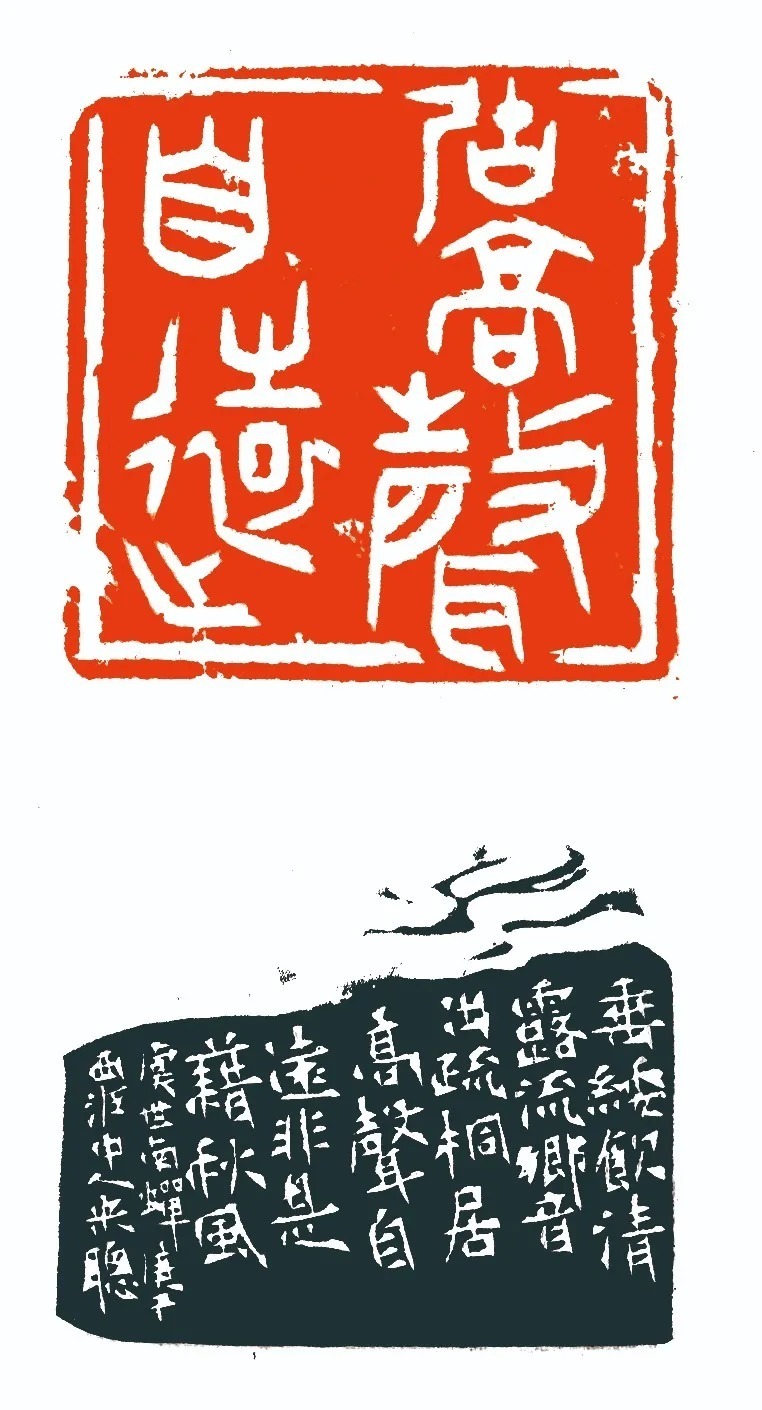 居高聲
自遠
垂緌飲清
露流響
出疏桐居
高聲自
遠非是
藉秋風
虞世南蟬
中人聰